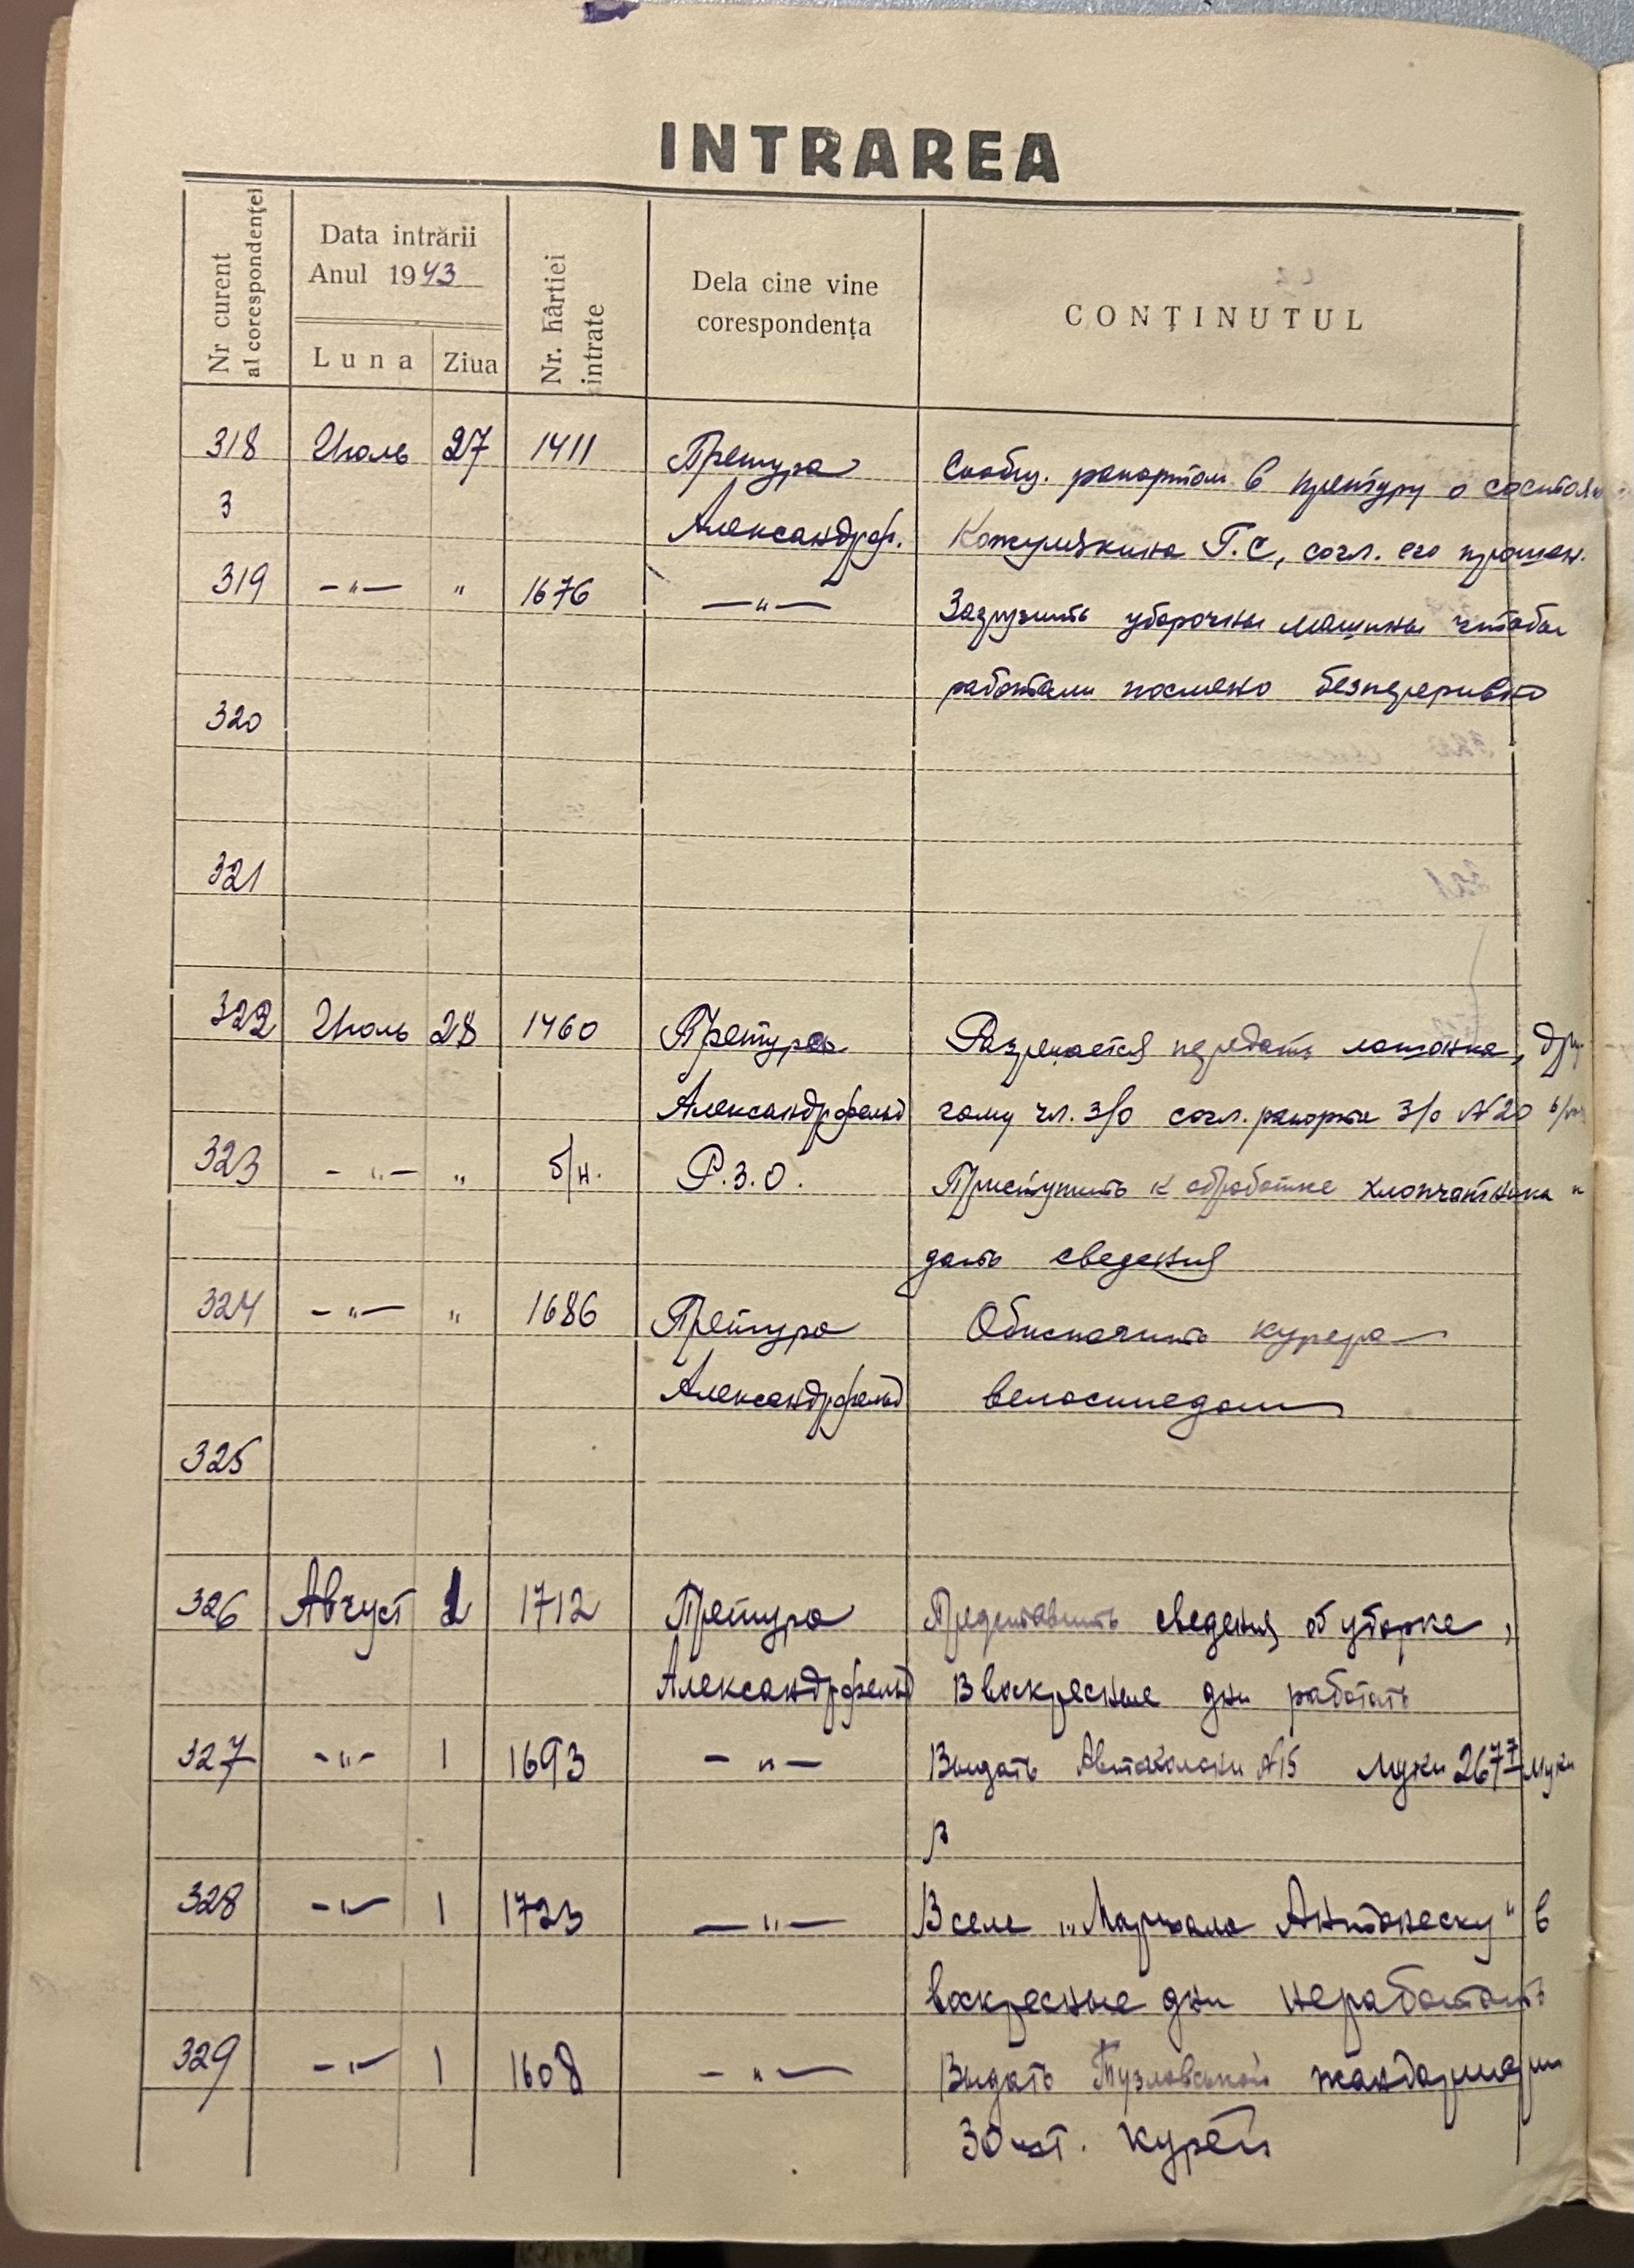 INTRAREA
Nr curent al corespondenței
Data intrării
Anul 1943
Luna Ziua
Nr. hârtiei intrate
Dela cine vine corespondența
CONȚINUTUL
318 Июль 27 1411 Претура Сообщ. рапортом в претуру о состоян
3 Александрф. Кожумякина Г.С, согл. его прошен.
319 -"- " 1676 -"- Загрузить уборочны машины чтобы
работали посмено безперерывно
320
321
322 Июль 28 1460 Претура Разрешается передать лошонка, дру
Александрфельд гому чл. з/о согл. рапорта з/о №20
323 -"- " б/н. Р.З.О. Приступить к обработке хлопчатника и
дать сведения
324 -"- " 1686 Претура Обиспечить курера
Александрфельд велосипедом
325
326 Август 1 1712 Претура Представить сведения об уборке,
Александрфельд В воскресные дни работать
327 -"- 1 1693 -"- Выдать №15 муки 2677 муки
в
328 -"- 1 1723 -"- В селе „Маршала Антонеску" в
воскресные дни неработать
329 -"- 1 1608 -"- Выдать Тузловской жандармерии
30 шт. курей